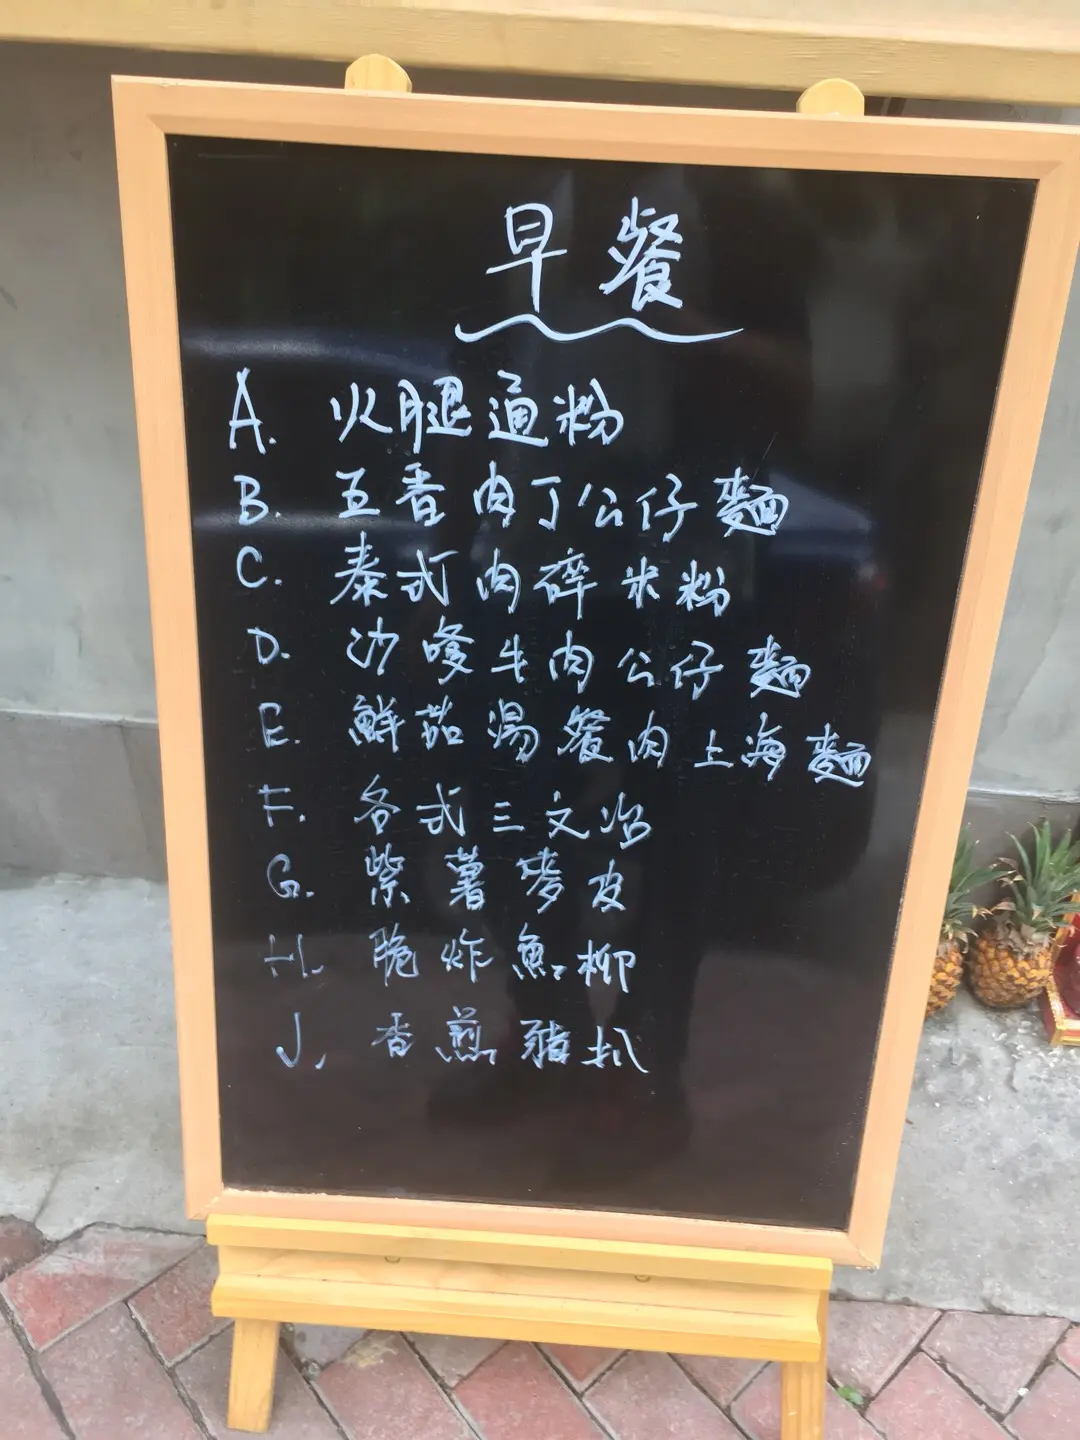 早餐
A. 火腿通粉
B. 五香肉丁公仔麵
C. 泰式肉碎米粉
D. 沙嗲牛肉公仔麵
E. 鮮茄湯餐肉上海麵
F. 各式三文治
G. 紫薯麥皮
H. 脆炸魚柳
J. 香煎豬扒